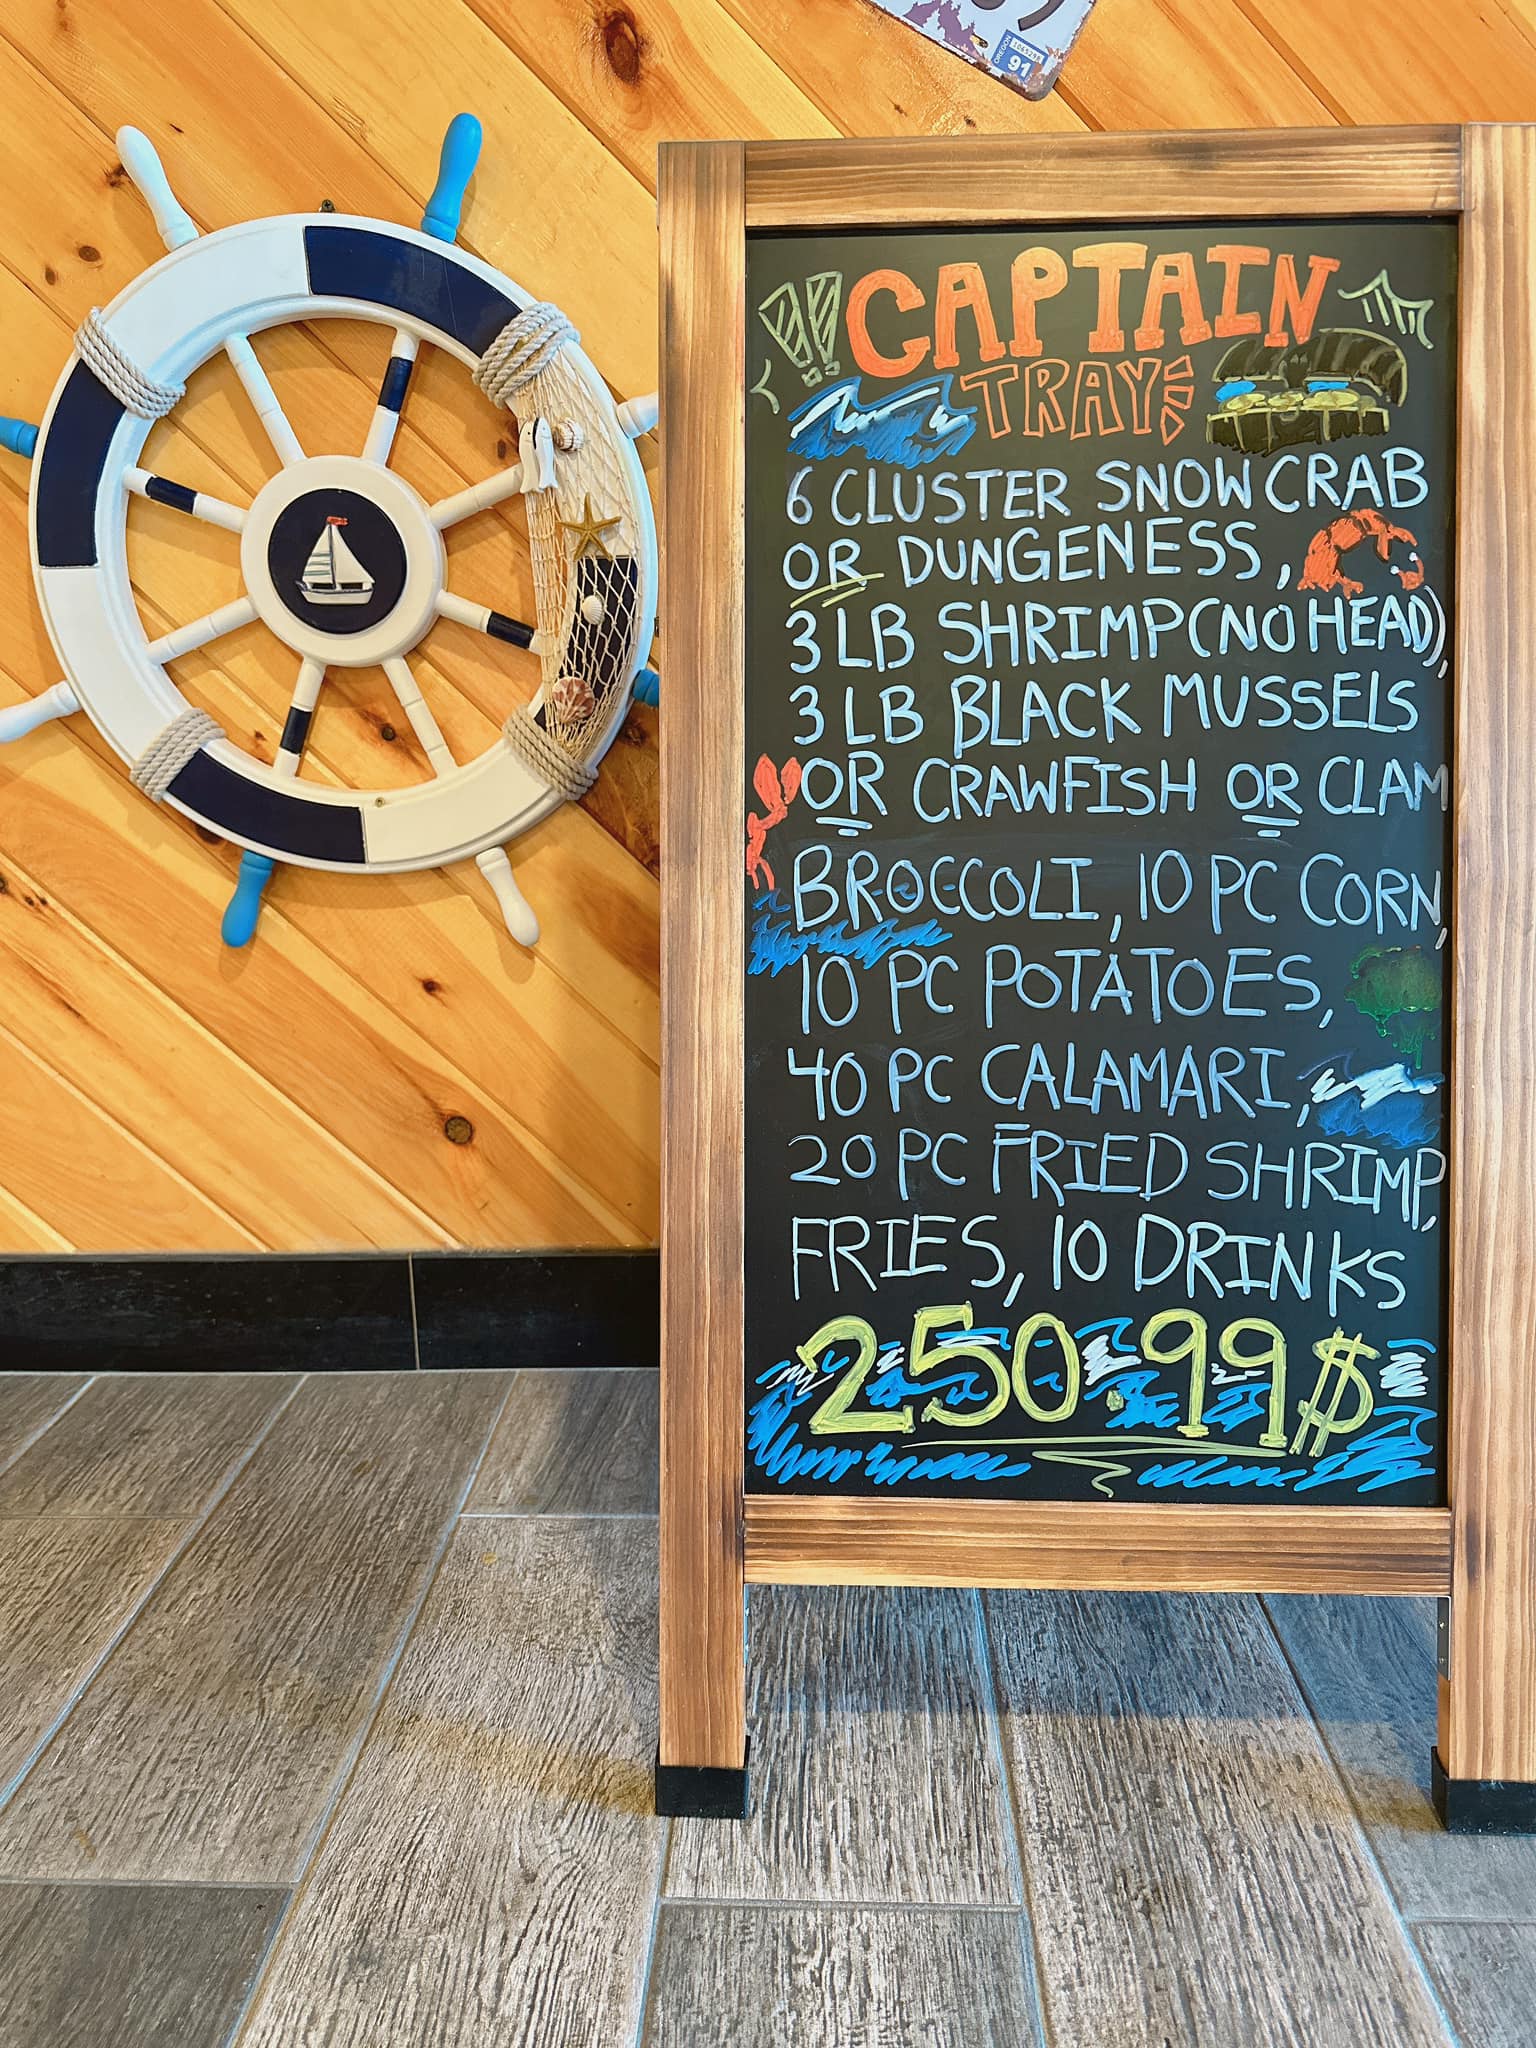 OREGON
91
CAPTAIN
TRAY
6 CLUSTER SNOW CRAB
OR DUNGENESS,
3 LB SHRIMP (NO HEAD),
3 LB BLACK MUSSELS
OR CRAWFISH OR CLAM
BROCCOLI, 10 PC CORN,
10 PC POTATOES,
40 PC CALAMARI,
20 PC FRIED SHRIMP,
FRIES, 10 DRINKS
250.99$